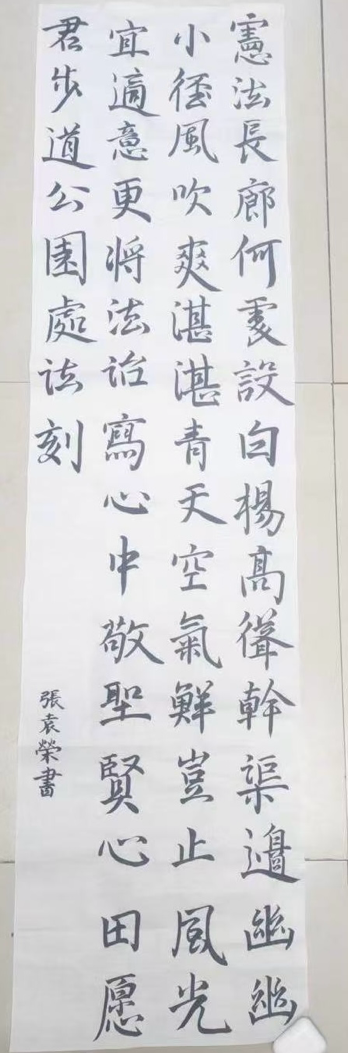 憲法長廊何處設白楊高聳幹渠邊幽幽
小徑風吹爽湛湛青天空氣鮮豈止風光
宜適意更將法治寫心中敬聖賢心田愿
君步道公園處法刻
張袁榮書